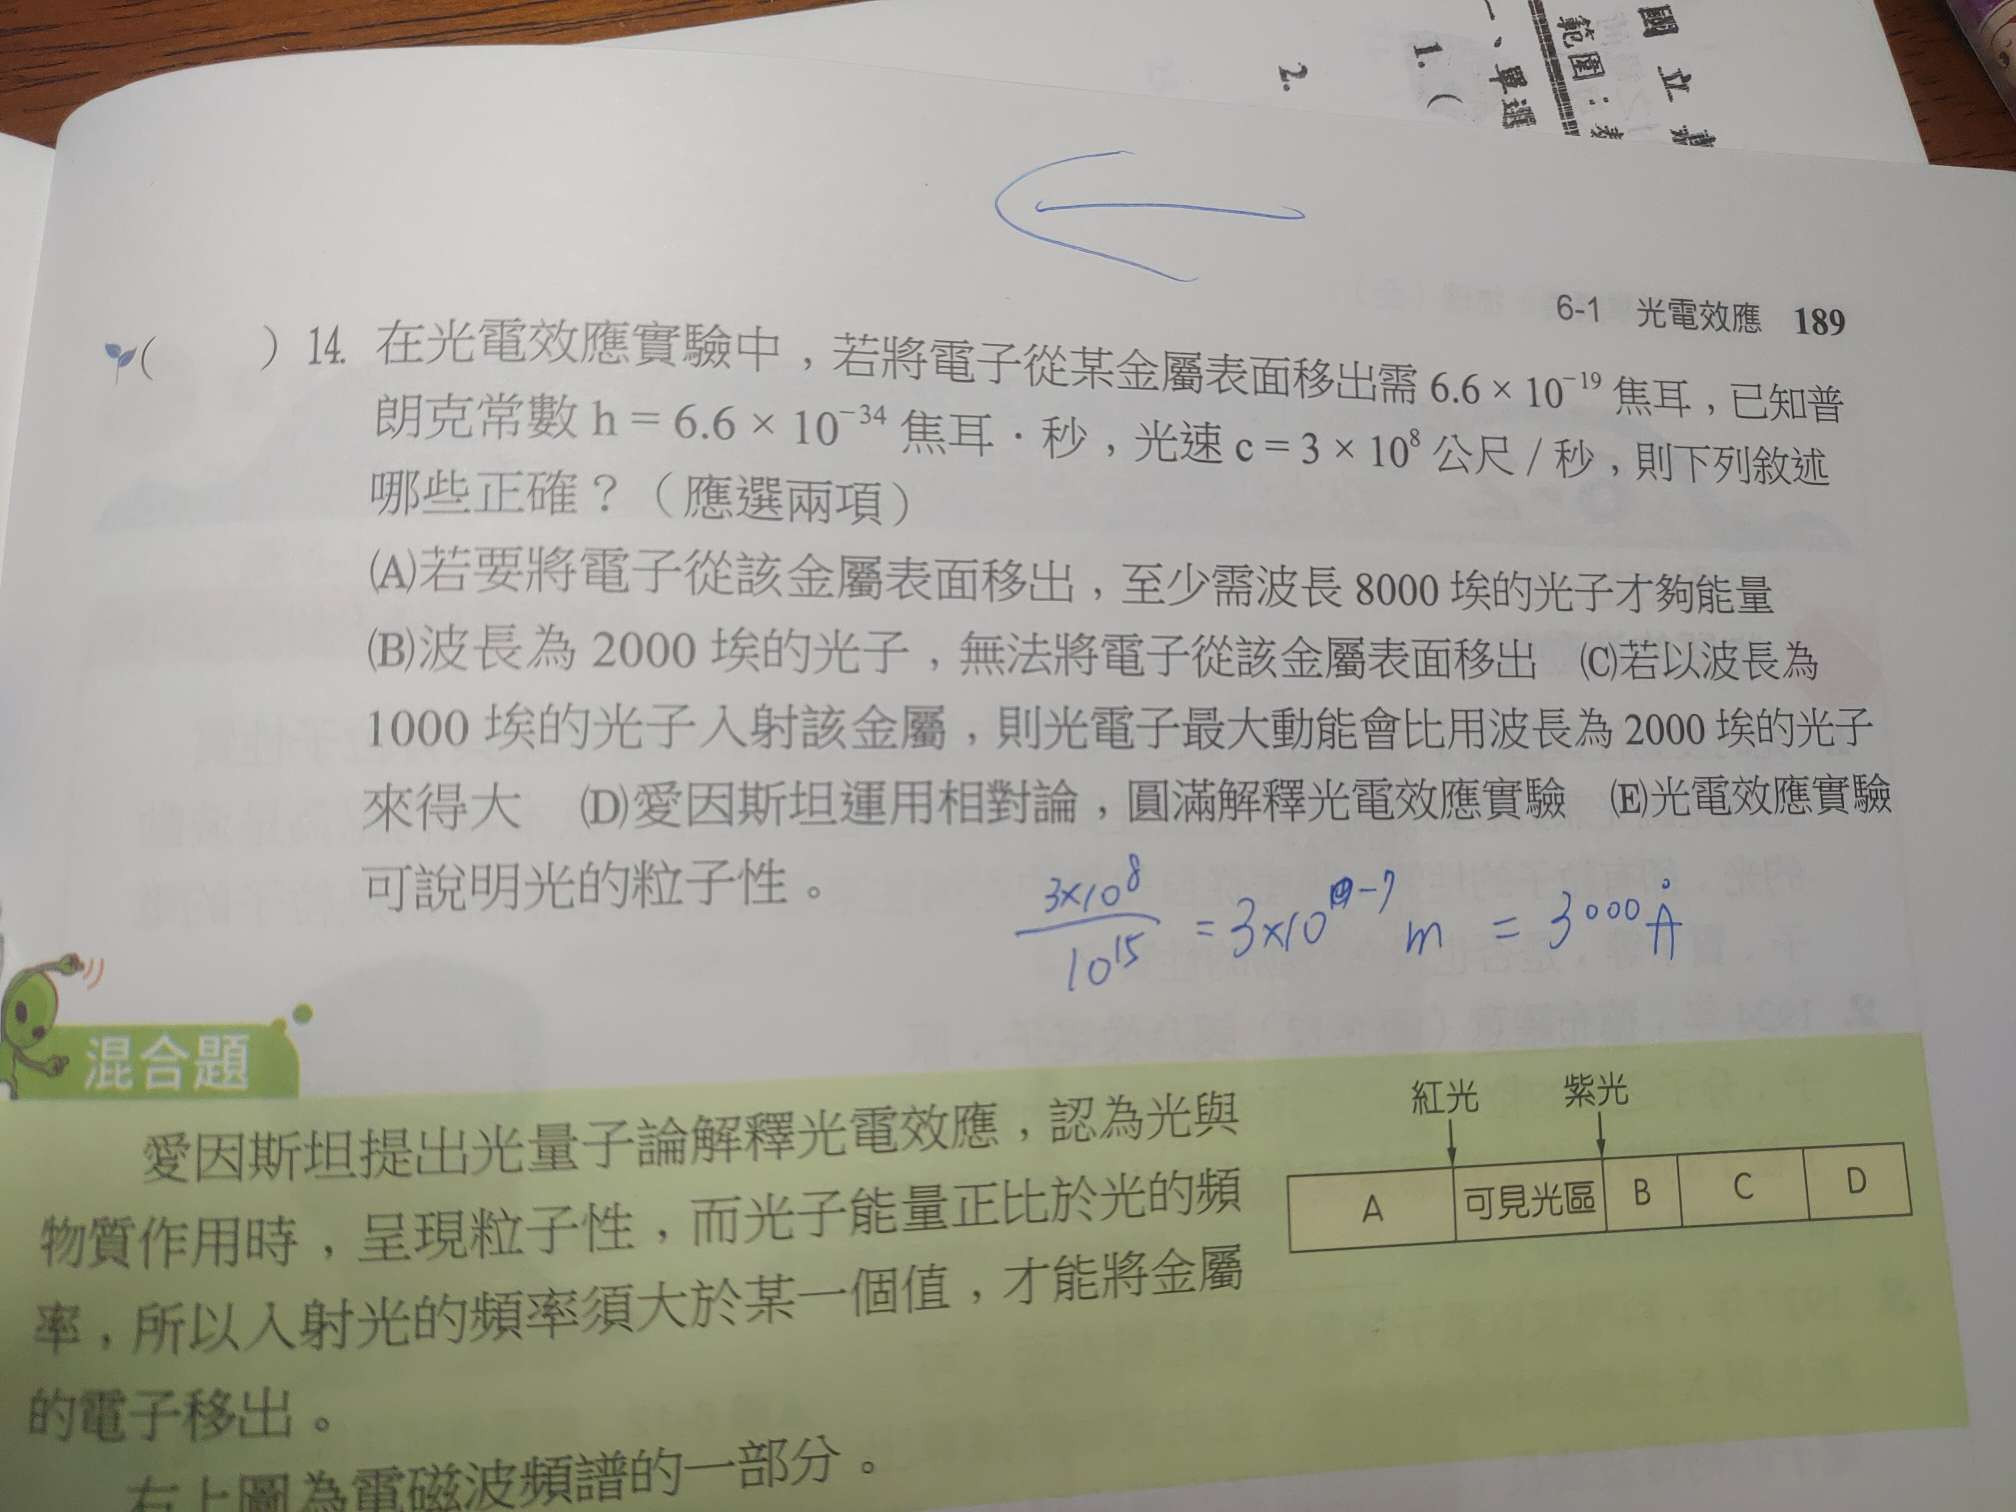 國立
範圍：
一、單選
1. (
2.
6-1 光電效應 189
( ) 14. 在光電效應實驗中，若將電子從某金屬表面移出需 6.6 × 10⁻¹⁹ 焦耳，已知普
朗克常數 h = 6.6 × 10⁻³⁴ 焦耳．秒，光速 c = 3 × 10⁸ 公尺 / 秒，則下列敘述
哪些正確？（應選兩項）
(A)若要將電子從該金屬表面移出，至少需波長 8000 埃的光子才夠能量
(B)波長為 2000 埃的光子，無法將電子從該金屬表面移出 (C)若以波長為
1000 埃的光子入射該金屬，則光電子最大動能會比用波長為 2000 埃的光子
來得大 (D)愛因斯坦運用相對論，圓滿解釋光電效應實驗 (E)光電效應實驗
可說明光的粒子性。
3×10⁸ / 10¹⁵ = 3×10⁻⁷ m = 3000 Å
混合題
愛因斯坦提出光量子論解釋光電效應，認為光與
物質作用時，呈現粒子性，而光子能量正比於光的頻
率，所以入射光的頻率須大於某一個值，才能將金屬
的電子移出。
右上圖為電磁波頻譜的一部分。
紅光 紫光
A 可見光區 B C D